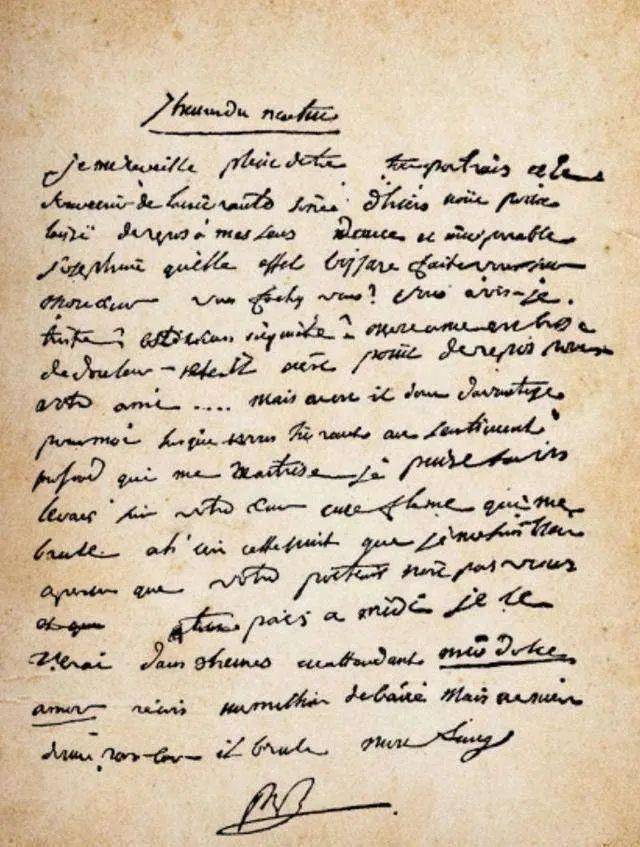 7 heures du matin
je me reveille plein de toi ton portrais et le
souvenir de l'enivrante soiree d'hiers nont point
laisé de repos à mes sens douce et incomparable
Josephine quelle effet bizzare faite vous sur
mon cœur vous fachez vous? vous vois-je
triste êtes vous inquiète mon ame est brise
de douleur point de repos pour
votre ami .... mais en est il donc davantage
pour moi lorsque vous livrant au sentiment
profond qui me maitrise je puise sur vos
levres sur votre cœur une flame qui me
brule ah! cette nuit que je me suis bien
aperçu que votre portrait n'est pas vous
tu pars a midi je te
verai dans 3 heures en attendant mio dolce
amor reçois un millier de baisé mais ne m'en
donne pas car il brule mon sang
NB